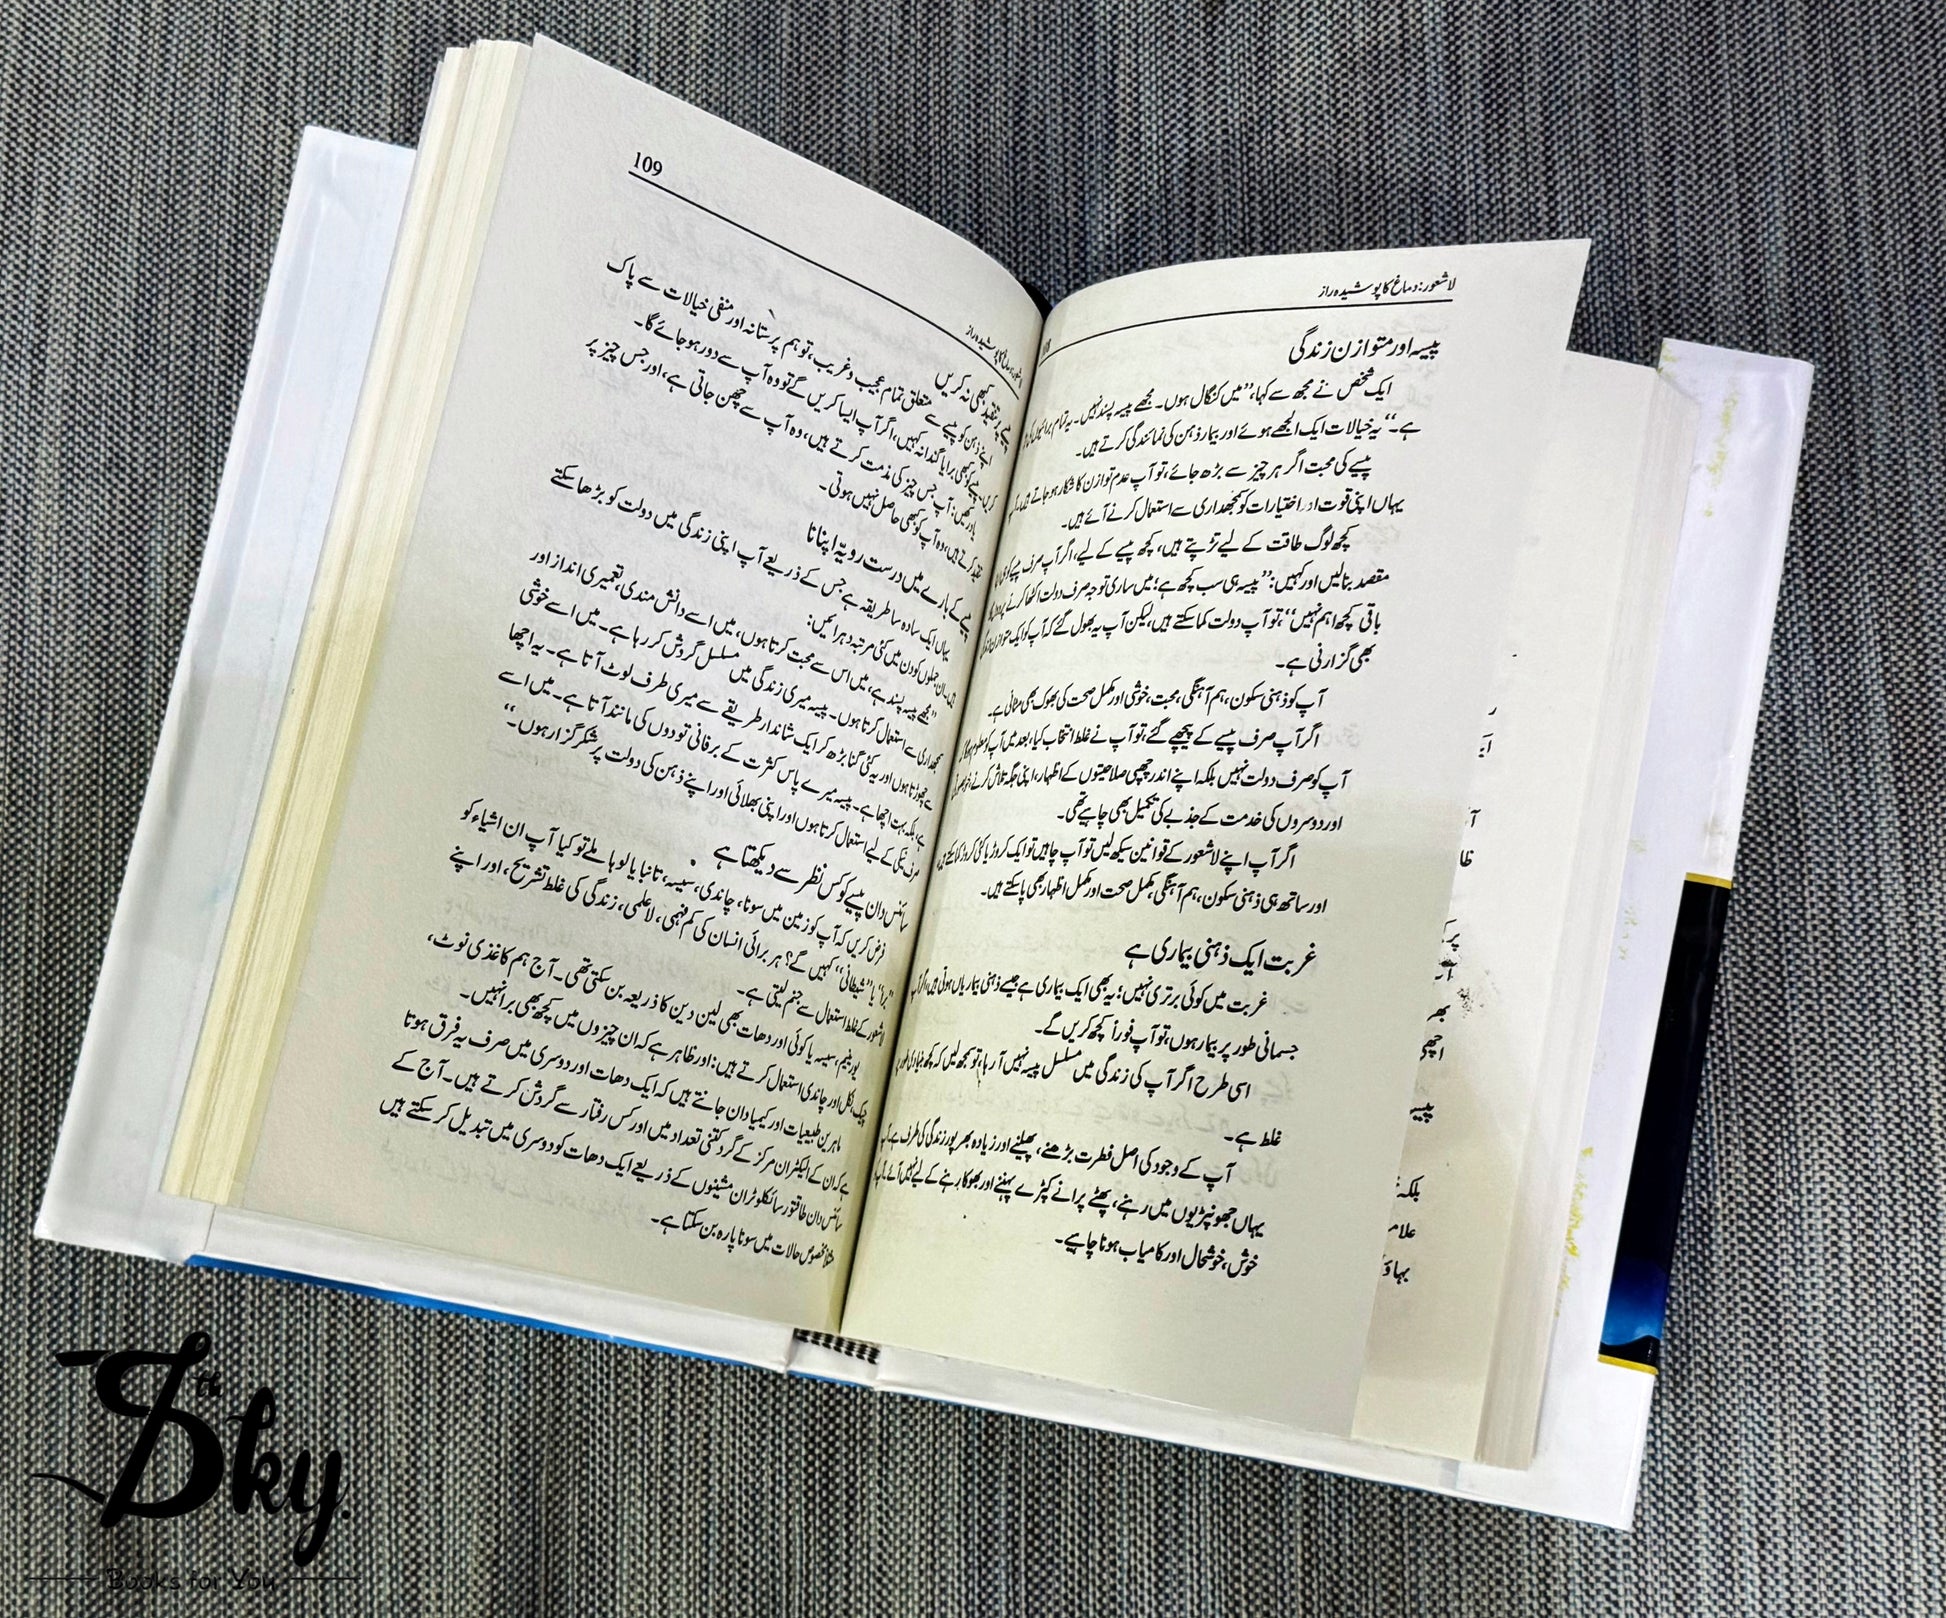 لاشعور: دماغ کا پوشیدہ راز
108
پیسہ اور متوازن زندگی
ایک شخص نے مجھ سے کہا، ”میں کنگال ہوں۔ مجھے پیسہ پسند نہیں۔ یہ تمام برائیوں کی
ہے۔“ یہ خیالات ایک الجھے ہوئے اور بیمار ذہن کی نمائندگی کرتے ہیں۔
پیسے کی محبت اگر ہر چیز سے بڑھ جائے، تو آپ عدم توازن کا شکار ہو جاتے ہیں۔
یہاں اپنی قوت اور اختیارات کو سمجھداری سے استعمال کرنے آئے ہیں۔
کچھ لوگ طاقت کے لیے تڑپتے ہیں، کچھ پیسے کے لیے، اگر آپ صرف پیسے کو
مقصد بنا لیں اور کہیں: ”پیسہ ہی سب کچھ ہے؛ میں ساری توجہ صرف دولت اکٹھا کرنے پر
باقی کچھ اہم نہیں“، تو آپ دولت کما سکتے ہیں، لیکن آپ یہ بھول گئے کہ آپ کو ایک متوازن زندگی
بھی گزارنی ہے۔
آپ کو ذہنی سکون، ہم آہنگی، محبت، خوشی اور مکمل صحت کی بھوک بھی مٹانی ہے۔
اگر آپ صرف پیسے کے پیچھے گئے، تو آپ نے غلط انتخاب کیا، بعد میں آپ کو معلوم ہوگا
آپ کو صرف دولت نہیں بلکہ اپنے اندر چھپی صلاحیتوں کے اظہار، اپنی جگہ تلاش کرنے،
اور دوسروں کی خدمت کے جذبے کی تکمیل بھی چاہیے تھی۔
اگر آپ اپنے لاشعور کے قوانین سیکھ لیں تو آپ چاہیں تو ایک کروڑ یا کئی کروڑ کما سکتے ہیں
اور ساتھ ہی ذہنی سکون، ہم آہنگی، مکمل صحت اور مکمل اظہار بھی پا سکتے ہیں۔
غربت ایک ذہنی بیماری ہے
غربت میں کوئی برتری نہیں؛ یہ بھی ایک بیماری ہے جیسے ذہنی بیماریاں ہوتی ہیں، اگر آپ
جسمانی طور پر بیمار ہوں، تو آپ فوراً کچھ کریں گے۔
اسی طرح اگر آپ کی زندگی میں مسلسل پیسہ نہیں آ رہا، تو سمجھ لیں کہ کچھ بنیادی طور پر
غلط ہے۔
آپ کے وجود کی اصل فطرت بڑھنے، پھیلنے اور زیادہ بھرپور زندگی کی طرف ہے۔ آپ
یہاں جھونپڑیوں میں رہنے، پھٹے پرانے کپڑے پہننے اور بھوکا رہنے کے لیے نہیں آئے۔ آپ کو
خوش، خوشحال اور کامیاب ہونا چاہیے۔
لاشعور: دماغ کا پوشیدہ راز
109
پیسے پر تنقید کبھی نہ کریں
اپنے ذہن کو پیسے سے متعلق تمام عجیب و غریب، توہم پرستانہ اور منفی خیالات سے پاک
کریں، پیسے کو کبھی برا یا گندا نہ کہیں، اگر آپ ایسا کریں گے تو وہ آپ سے دور ہو جائے گا۔
یاد رکھیں: آپ جس چیز کی مذمت کرتے ہیں، وہ آپ سے چھن جاتی ہے، اور جس چیز پر
تنقید کرتے ہیں، وہ آپ کو کبھی حاصل نہیں ہوتی۔
پیسے کے بارے میں درست رویہ اپنانا
یہاں ایک سادہ سا طریقہ ہے جس کے ذریعے آپ اپنی زندگی میں دولت کو بڑھا سکتے
ہیں۔ ان جملوں کو دن میں کئی مرتبہ دہرائیں:
”مجھے پیسہ پسند ہے، میں اس سے محبت کرتا ہوں، میں اسے دانش مندی، تعمیری انداز اور
سمجھداری سے استعمال کرتا ہوں۔ پیسہ میری زندگی میں مسلسل گردش کر رہا ہے۔ میں اسے خوشی
سے چھوڑتا ہوں اور یہ کئی گنا بڑھ کر ایک شاندار طریقے سے میری طرف لوٹ آتا ہے۔ یہ اچھا
ہے، بلکہ بہت اچھا ہے۔ پیسہ میرے پاس کثرت کے برفانی تودوں کی مانند آتا ہے۔ میں اسے
صرف نیکی کے لیے استعمال کرتا ہوں اور اپنی بھلائی اور اپنے ذہن کی دولت پر شکر گزار ہوں۔“
سائنس دان پیسے کو کس نظر سے دیکھتا ہے
فرض کریں کہ آپ کو زمین میں سونا، چاندی، سیسہ، تانبا یا لوہا ملے تو کیا آپ ان اشیاء کو
”برا“ یا ”شیطانی“ کہیں گے؟ ہر برائی انسان کی کم فہمی، لاعلمی، زندگی کی غلط تشریح، اور اپنے
لاشعور کے غلط استعمال سے جنم لیتی ہے۔
یورینیم، سیسہ یا کوئی اور دھات بھی لین دین کا ذریعہ بن سکتی تھی۔ آج ہم کاغذی نوٹ،
چیک، نکل اور چاندی استعمال کرتے ہیں: اور ظاہر ہے کہ ان چیزوں میں کچھ بھی برا نہیں۔
ماہرین طبیعیات اور کیمیا دان جانتے ہیں کہ ایک دھات اور دوسری میں صرف یہ فرق ہوتا
ہے کہ ان کے الیکٹران مرکز کے گرد کتنی تعداد میں اور کس رفتار سے گردش کرتے ہیں۔ آج کے
سائنس دان طاقتور سائکلوٹران مشینوں کے ذریعے ایک دھات کو دوسری میں تبدیل کر سکتے ہیں
مثلاً مخصوص حالات میں سونا پارہ بن سکتا ہے۔
7th Sky.
Books for You